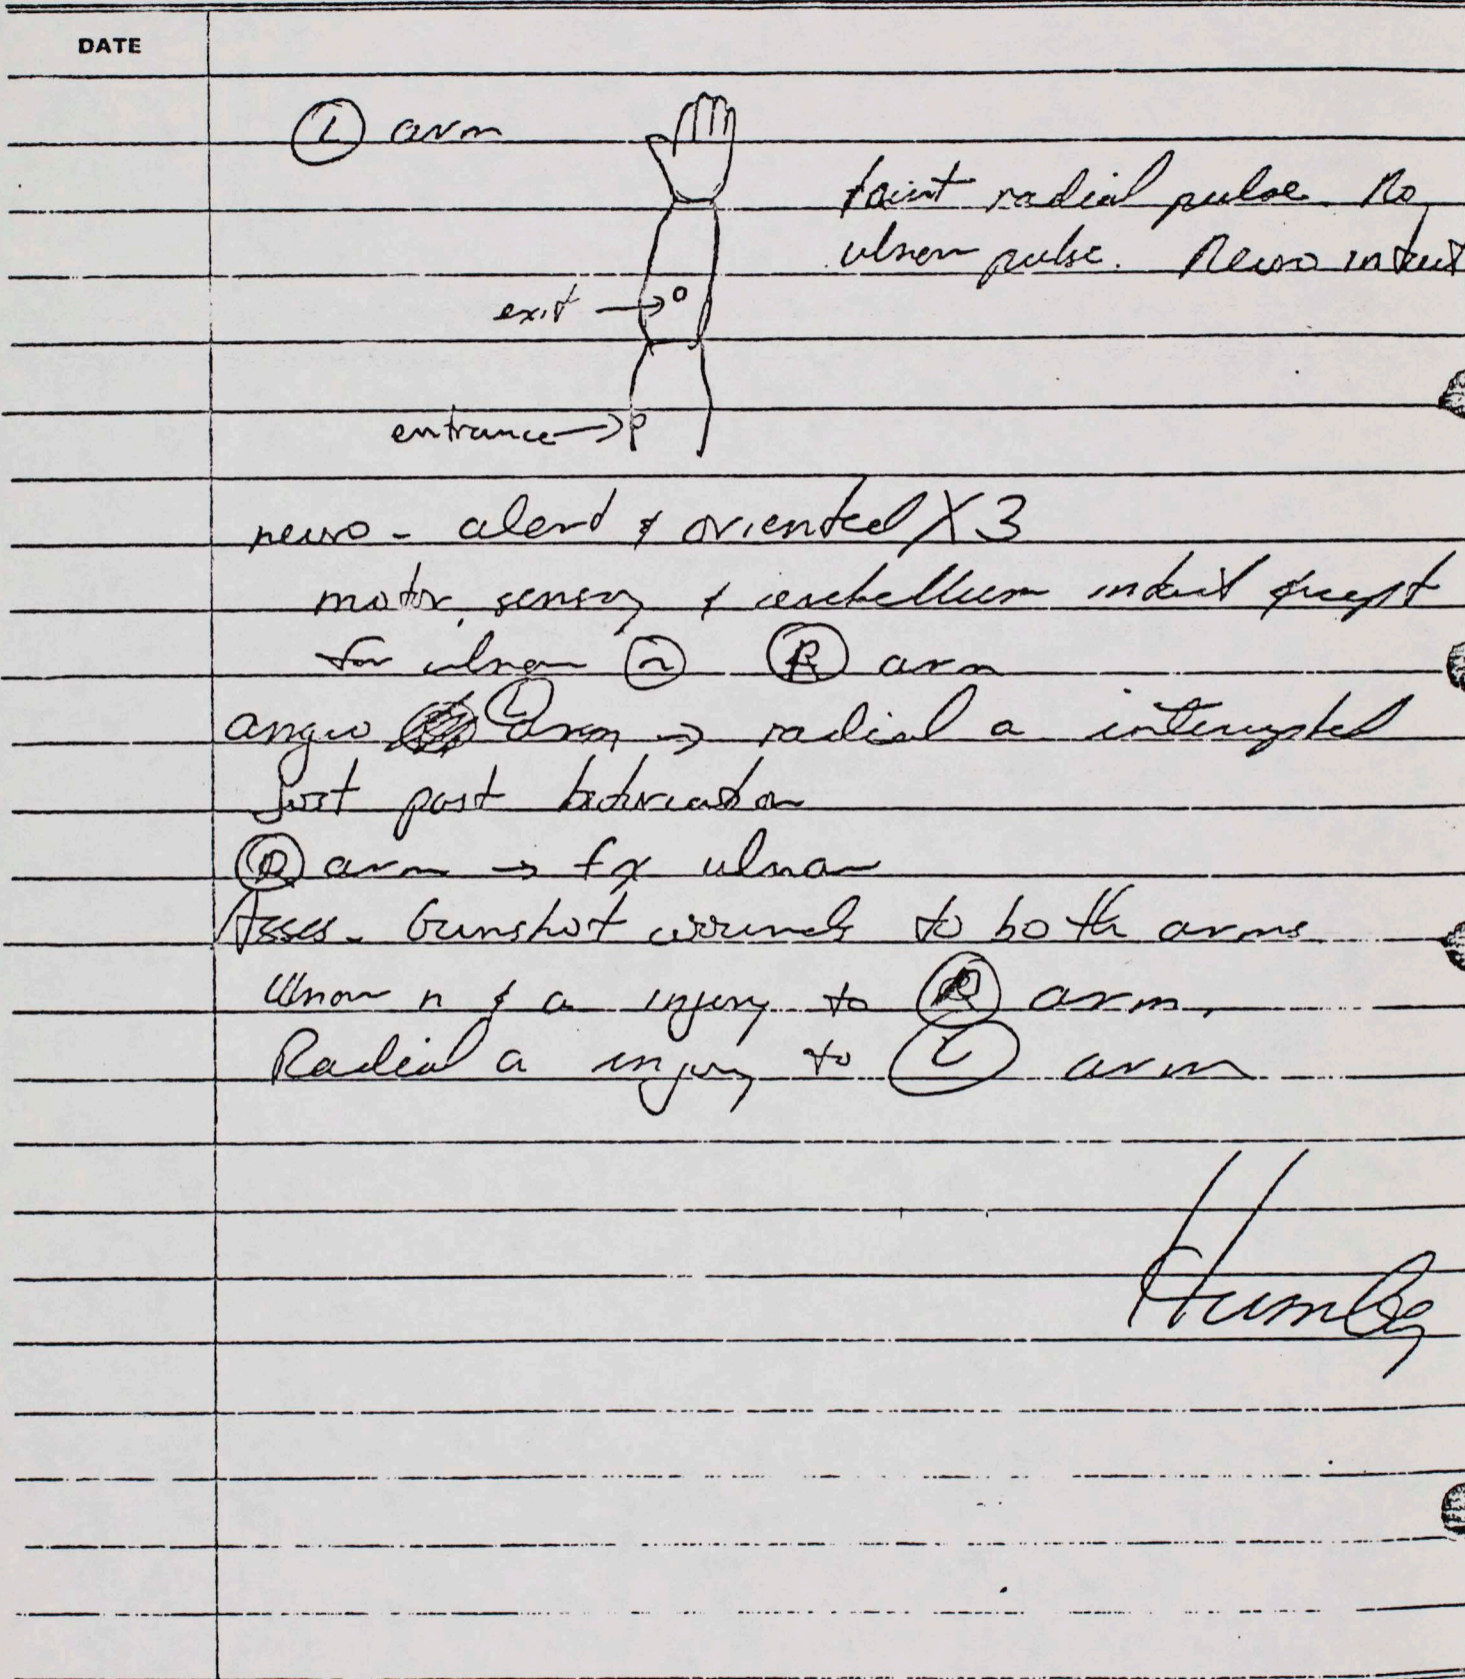 DATE
Ⓛ arm
faint radial pulse. No
ulnar pulse. Neuro intact
exit →
entrance →
neuro - alert & oriented X3
motor, sensory & cerebellum intact except
for ulnar ⓝ Ⓡ arm
angio Ⓛ arm → radial a interrupted
just past bifurcation
Ⓡ arm → fx ulnar
Asses - Gunshot wounds to both arms
Ulnar n & a injury to Ⓡ arm,
Radial a injury to Ⓛ arm